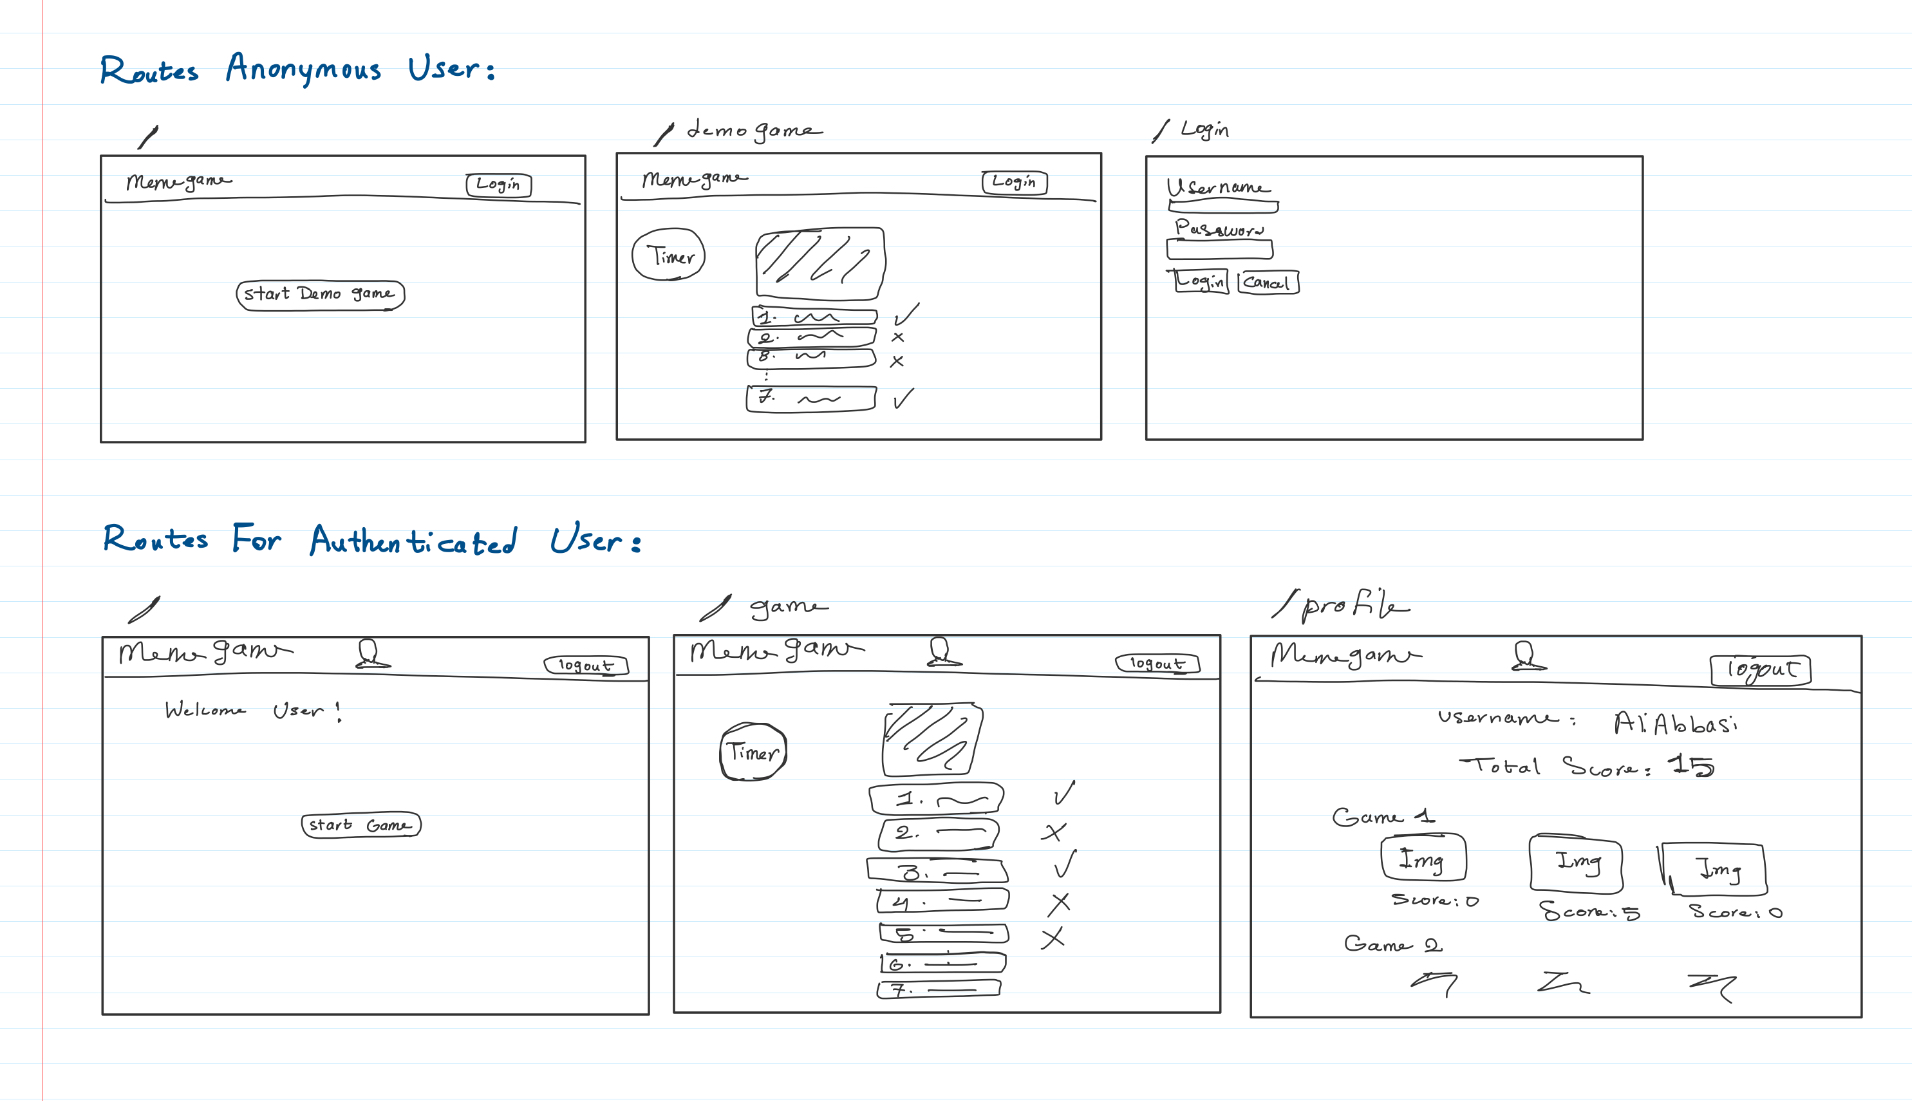 Routes Anonymous User:
/
Meme game
Login
start Demo game
/ demo game
Meme game
Login
Timer
1.
2.
8.
7.
/ Login
Username
Password
Login
Cancal
Routes For Authenticated User:
/
Meme game
logout
Welcome User!
start Game
/ game
Meme game
logout
Timer
1.
2.
3.
4.
5.
6.
7.
/profile
Meme game
logout
username: AliAbbasi
Total Score: 15
Game 1
Img
Img
Img
Score: 0
Score: 5
Score: 0
Game 2